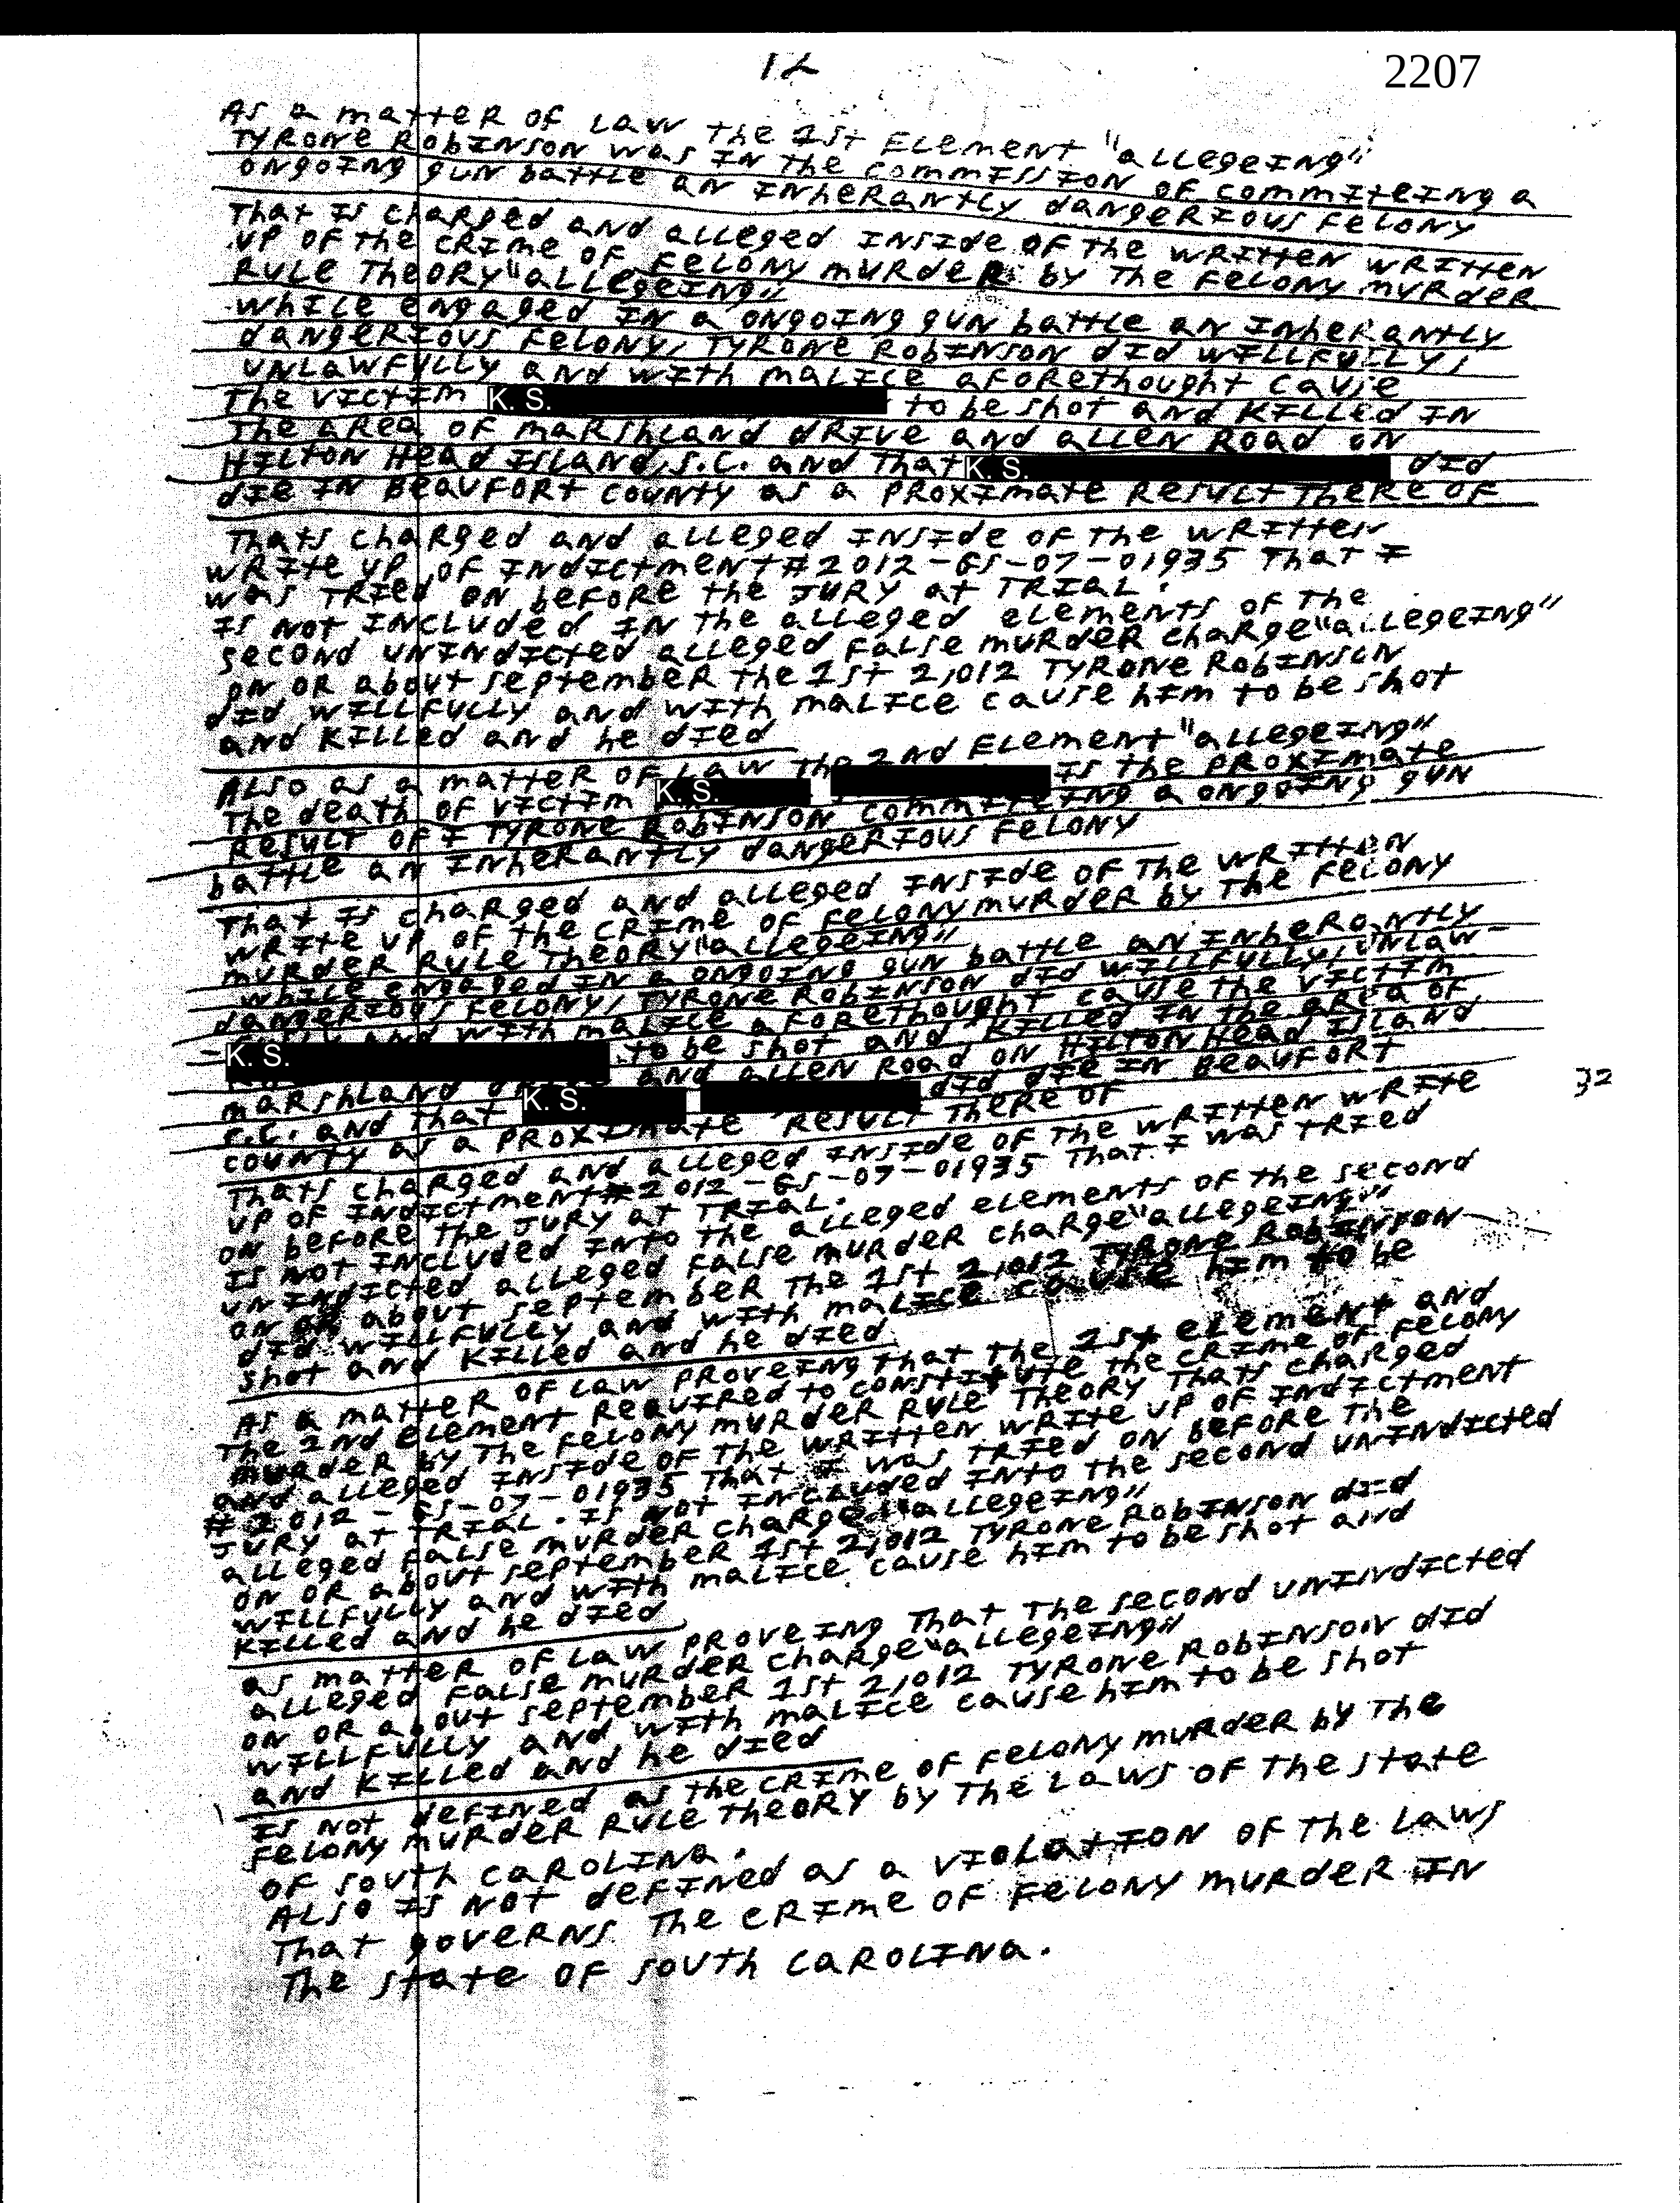 12
2207
As a matter of law the 1st Element "allegeing"
Tyrone Robinson was in the commission of commiteing a
ongoing gun battle an inherantly dangerious felony
That is charged and alleged inside of the written written
up of the crime of felony murder by the felony murder
rule theory "allegeing"
while engaged in a ongoing gun battle an inherantly
dangerious felony, Tyrone Robinson did willfully,
unlawfully and with malice aforethought cause
The victim K. S. to be shot and killed in
the area of marshland drive and allen Road on
Hilton Head Island, S.C. and that K. S. did
die in Beaufort county as a proximate result there of
Thats charged and alleged inside of the written
write up of indictment # 2012-GS-07-01935 that I
was tried on before the jury at trial.
is not included in the alleged elements of the
second unindicted alleged false murder charge "allegeing"
on or about september the 1st 2,012 Tyrone Robinson
did willfully and with malice cause him to be shot
and killed and he died
Also as a matter of law the 2nd Element "allegeing"
The death of victim K. S. is the proximate
result of I Tyrone Robinson commiteing a ongoing gun
battle an inherantly dangerious felony
That is charged and alleged inside of the written
write up of the crime of felony murder by the felony
murder rule theory "allegeing"
while engaged in a ongoing gun battle an inherantly
dangerious felony, Tyrone Robinson did willfully, unlaw-
and with malice aforethought cause the victim
K. S. to be shot and killed in the area of
marshland and allen Road on Hilton Head Island
S.C. and that K. S. did die in Beaufort
county as a proximate result there of
32
Thats charged and alleged inside of the written write
up of indictment # 2012-GS-07-01935 that I was tried
on before the jury at trial.
is not included into the alleged elements of the second
unindicted alleged false murder charge "allegeing"
on or about september the 1st 2,012 Tyrone Robinson
did willfully and with malice cause him to be
shot and killed and he died
As a matter of law proveing that the 1st element and
the 2nd element required to constitute the crime of felony
murder by the felony murder rule theory thats charged
and alleged inside of the written write up of indictment
# 2012-GS-07-01935 that I was tried on before the
jury at trial. is not included into the second unindicted
alleged false murder charge "allegeing"
on or about september 1st 2,012 Tyrone Robinson did
willfully and with malice cause him to be shot and
killed and he died
as matter of law proveing that the second unindicted
alleged false murder charge "allegeing"
on or about september 1st 2,012 Tyrone Robinson did
willfully and with malice cause him to be shot
and killed and he died
is not defined as the crime of felony murder by the
felony murder rule theory by the laws of the state
of south carolina.
Also is not defined as a violation of the laws
that governs the crime of felony murder in
the state of south carolina.